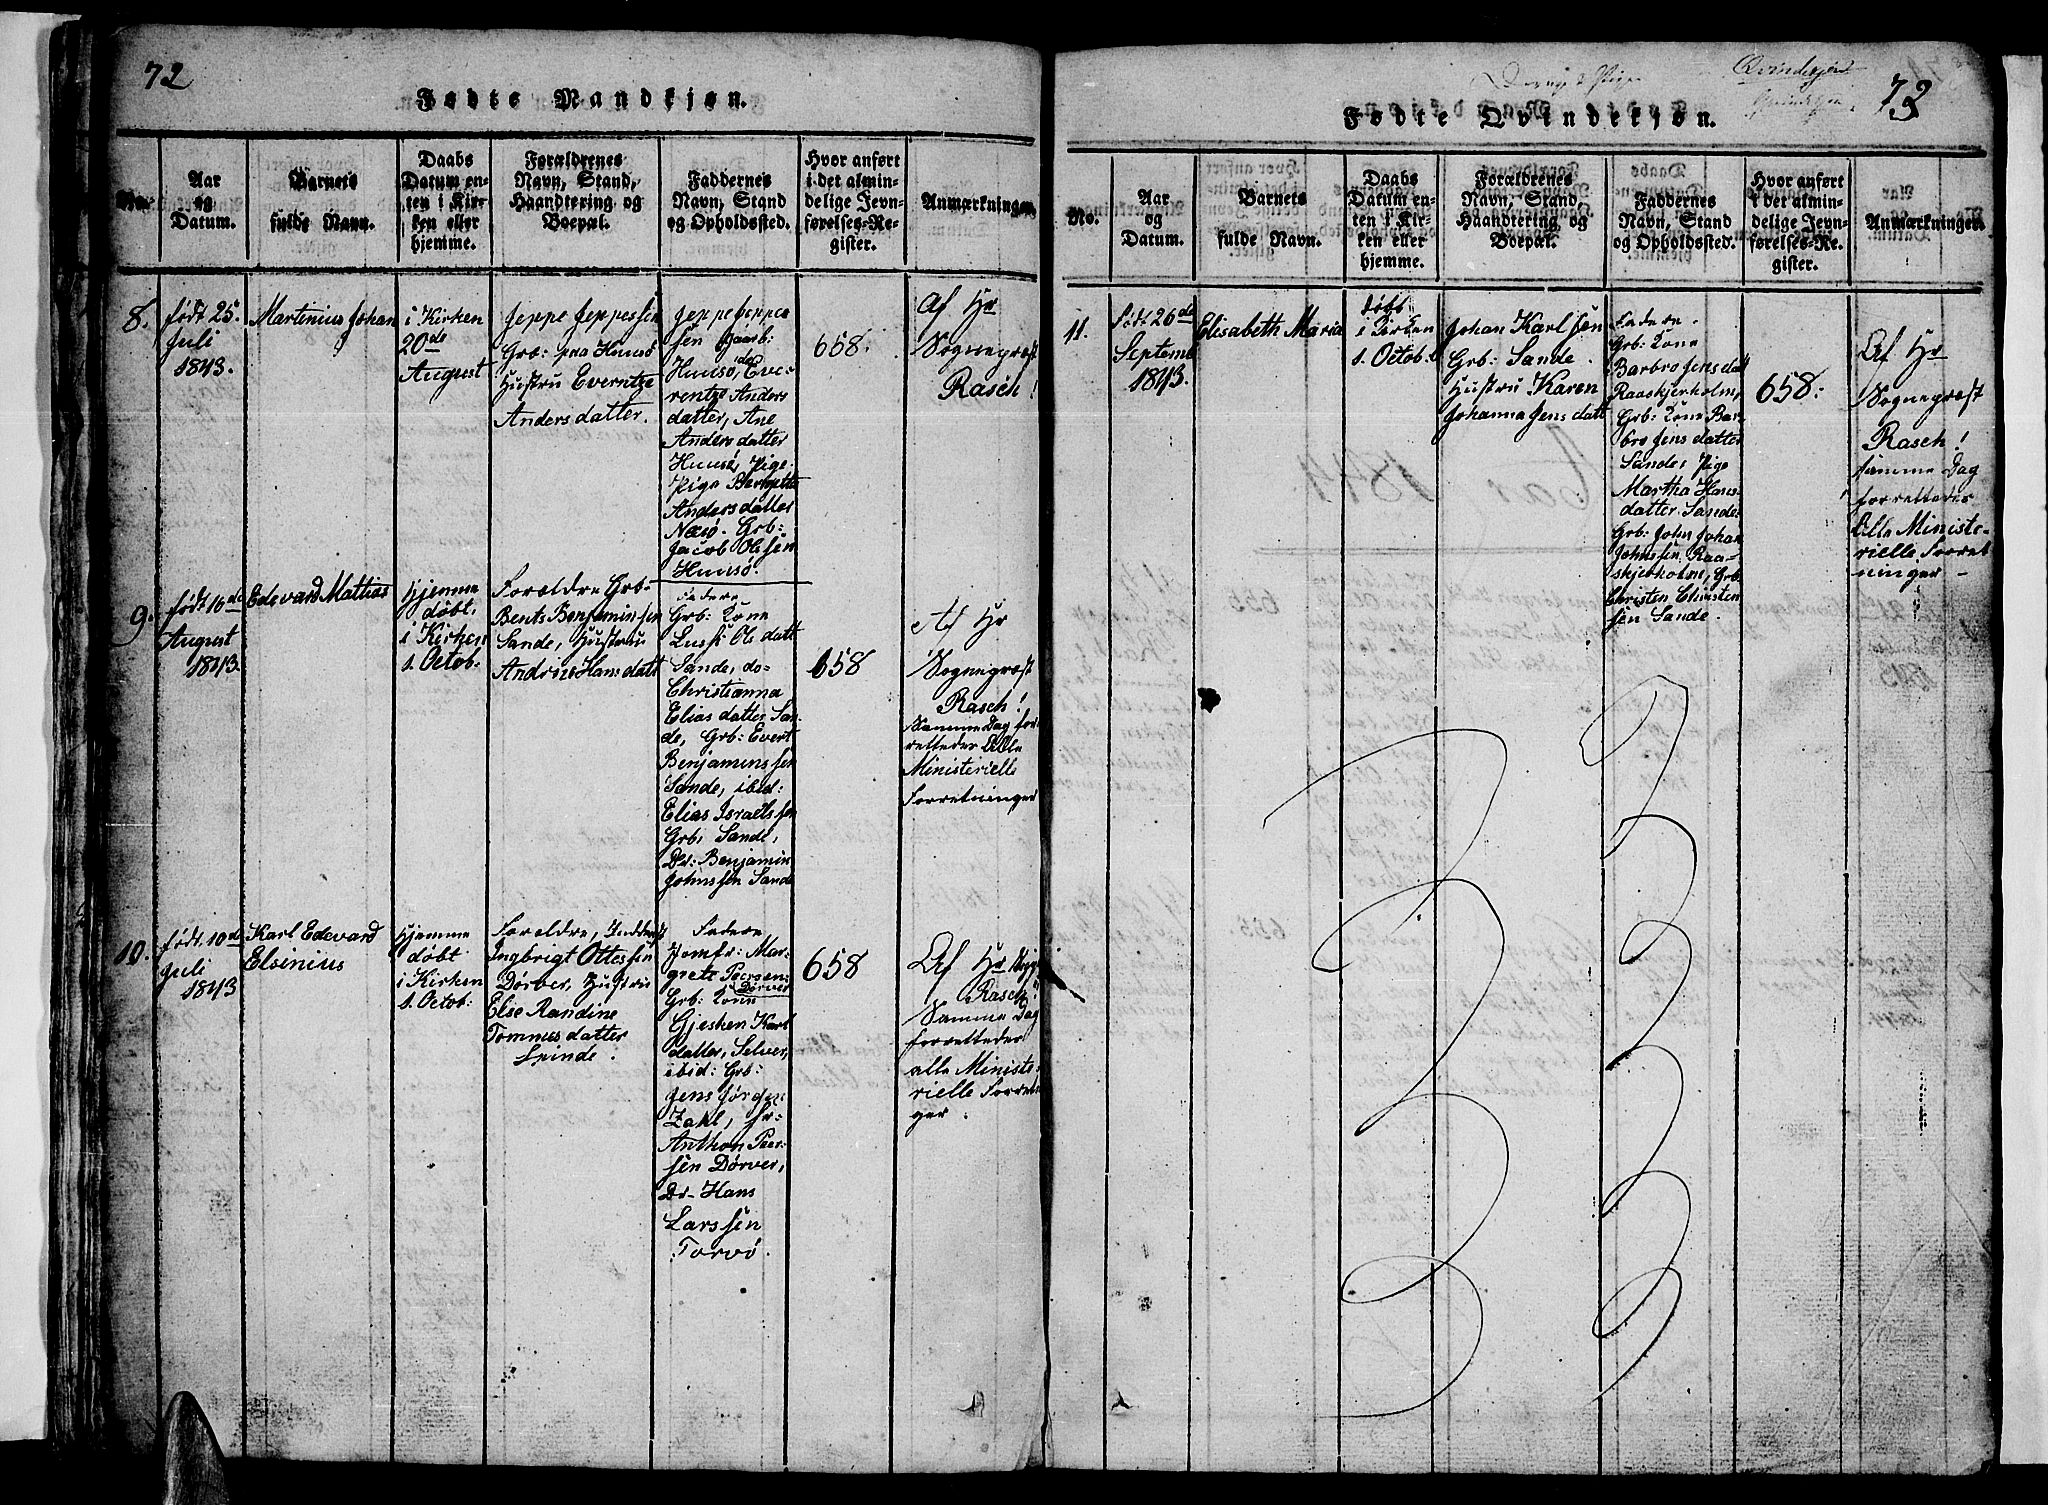 72
Fødte Mandkjøn.
No.
Aar
og
Datum.
Barnets
fulde Navn.
Daabs
Datum en-
ten i Kir-
ken eller
hjemme.
Forældrenes
Navn, Stand,
Haandtering og
Boepæl.
Faddernes
Navn, Stand
og Opholdssted.
Hvor anført
i det almin-
delige Jevn-
førelses-Re-
gister.
Anmærkninger.
8.
født 25.
Juli
1843.
Martinius Johan
i Kirken
20de
August
Jeppe Jeppessen
Grb: paa Huusø
Hustru Everntze
Andersdatter.
Jeppe Jeppes
sen Gaarb:
Huusø, Eve-
rentze Anders
datter, Ane
Andersdatter
Huusø, Pige
Pige Bergette
Andersdatter
Næsø. Grb:
Jacob Olssen
Huusø.
658.
Af Hr
Sognepræst
Rasch!
9.
født 16de
August
1843.
Edevard Mattias
Hjemme
døbt,
i Kirken
1. Octob:
Foreldre Grb-
Bents Benjaminssen
Sande, Hustru
Andrine Hansdatt
Fadere
Grb: Kone
Lussi Olsdatt
Sande, do-
Christianna
Eliasdatter San-
de, Grb: Evert
Benjaminssen
Sande, ibid:
Elias Israelssen
Grb: Sande,
Dr: Benjamin
Johnssen Sande
658
Af Hr
Sognepræst
Rasch!
Samme Dag for-
retteder Alle
Ministerielle
Forretninger
10.
født 10de
Juli
1843
Karl Edevard
Elsenius
Hjemme
døbt
i Kirken
1. Octob:
Foreldre,
Ingbrigt Ottessen
Dørver, Hustru
Else Randine
Tommesdatter
Fadere
Jomfr: Mar-
grete Peersen:
Dørver
Grb: Kone
Gjesken Karl
datter, Selver,
ibid: Grb:
Jens Jørgen
Zahl,
Anthon Peer-
sen Dørver,
Dr- Hans
Larssen
Torvø.
658
Af Hr
Rasch!
Samme Dag
forretteder
alle Ministe-
rielle Forretnin
ger.
73
Qvindekjøn
Fødte Qvindekjøn.
No.
Aar
og
Datum.
Barnets
fulde Navn.
Daabs
Datum en-
ten i Kir-
ken eller
hjemme.
Forældrenes
Navn, Stand,
Haandtering og
Boepæl.
Faddernes
Navn, Stand
og Opholdssted.
Hvor anført
i det almin-
delige Jevn-
førelses-Re-
gister.
Anmærkninger.
11.
født 26de
Septemb
1843.
Elisabeth Maria
døbt
i Kirken
1. Octob.
Johan Karlsen
Grb: Sande.
Hustru Karen
Johanna Jensdatt
Fadere-
Grb: Kone
Barbro Jensdatt
Raaskjerholm,
Grb: Kone Bar-
bro Jensdatter
Sande, Pige
Martha Hans-
datter Sande-
Grb: John Johan
Johnssen Raa-
skjerholm, Grb
Christen Christen
sen Sande.
658:
Af Hr
Sognepræst
Rasch!
samme Dag
forretteder
Alle Ministe-
rielle Forret
ninger -